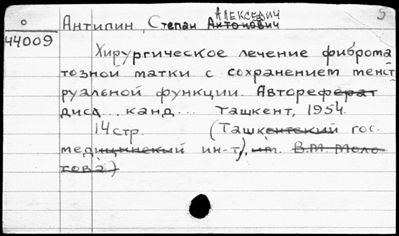 5
Алексевич
о Антипин, Степан Антонович
44009
Хирургическое лечение фиброма
тозной матки с сохранением менст
руальной функции. Автореферат
дисс... канд... Ташкент, 1954.
14 стр. (Ташкентский гос.
медицинский ин-т), им. В.М. Моло
това)